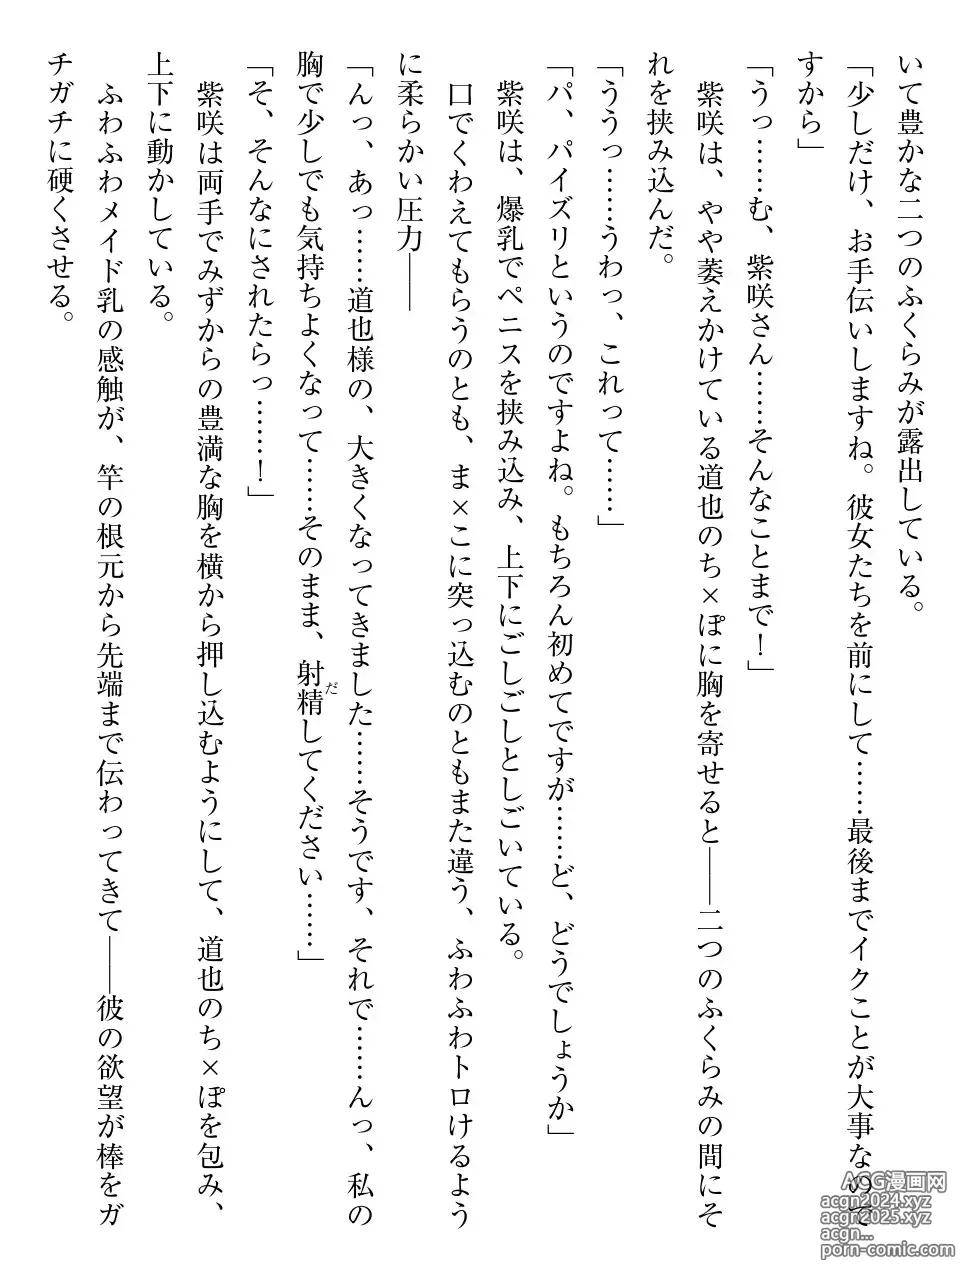 いて豊かな二つのふくらみが露出している。
「少しだけ、お手伝いしますね。彼女たちを前にして……最後までイクことが大事なので
すから」
「うっ……む、紫咲さん……そんなことまで！」
紫咲は、やや萎えかけている道也のち×ぽに胸を寄せると――二つのふくらみの間にそ
れを挟み込んだ。
「ううっ……うわっ、これって……」
「パ、パイズリというのですよね。もちろん初めてですが……ど、どうでしょうか」
紫咲は、爆乳でペニスを挟み込み、上下にごしごしとしごいている。
口でくわえてもらうのとも、ま×こに突っ込むのともまた違う、ふわふわトロけるよう
に柔らかい圧力――
「んっ、あっ……道也様の、大きくなってきました……そうです、それで……んっ、私の
胸で少しでも気持ちよくなって……そのまま、射精してください……」
だ
「そ、そんなにされたらっ……！」
紫咲は両手でみずからの豊満な胸を横から押し込むようにして、道也のち×ぽを包み、
上下に動かしている。
ふわふわメイド乳の感触が、竿の根元から先端まで伝わってきて――彼の欲望が棒をガ
チガチに硬くさせる。
ACG漫画网
acgn2024.xyz
acgr2025.xyz
acgn...
porn-comic.com